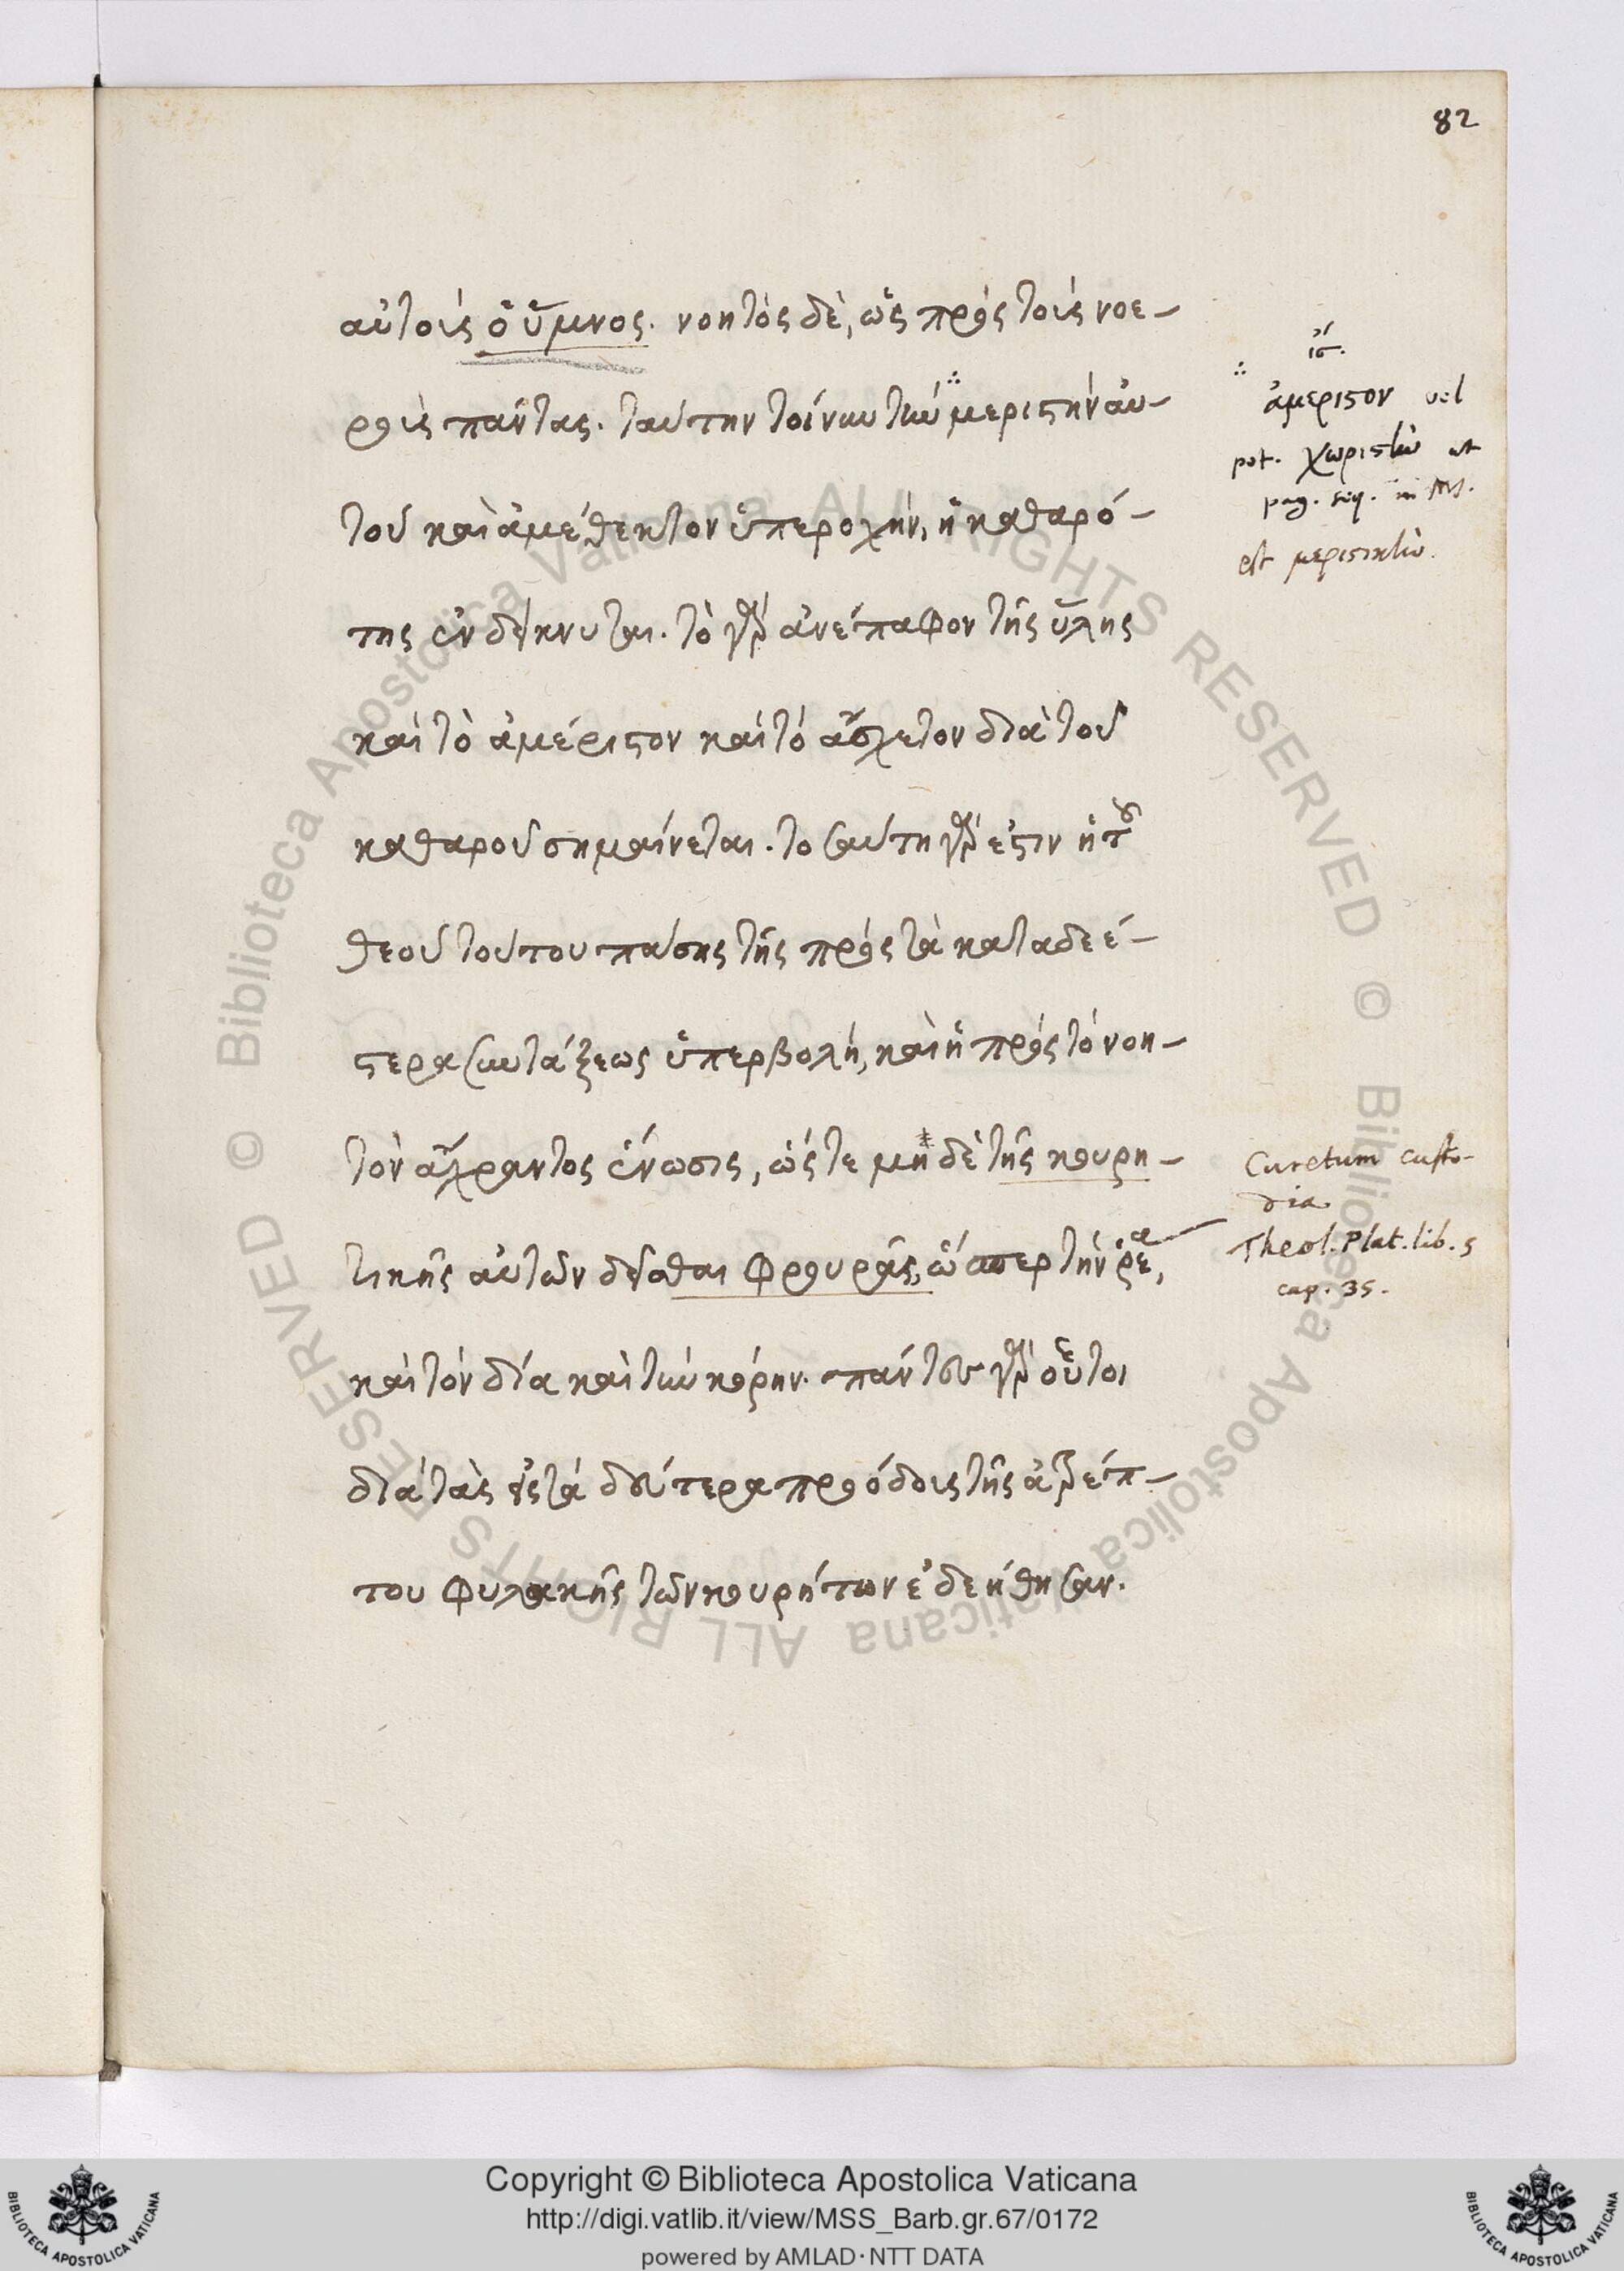 82
αὐτοῖς ὁ ὕμνος. νοητὸς δὲ, ὡς πρὸς τοὺς νοε-
ροὺς πάντας. ταύτην τοίνυν τὴν ∴ μεριστὴν αὐ-
τοῦ καὶ ἀμέθεκτον ὑπεροχὴν, ἡ καθαρό-
της ἐνδείκνυται. τὸ γὰρ ἀνέπαφον τῆς ὕλης
καὶ τὸ ἀμέριστον καὶ τὸ ἄσχετον διὰ τοῦ
καθαροῦ σημαίνεται. τοσαύτη γάρ ἐστιν ἡ τοῦ
θεοῦ τούτου πάσης τῆς πρὸς τὰ καταδεέ-
στερα συντάξεως ὑπερβολὴ, καὶ ἡ πρὸς τὸ νοη-
τὸν ἄχραντος ἕνωσις, ὥστε μηδὲ τῆς κουρη-
τικῆς αὐτὸν δεῖσθαι φρουρᾶς, ὥσπερ τὴν ῥέα,
καὶ τὸν δία καὶ τὴν κόρην. πάντες γὰρ οὗτοι
διὰ τὰς εἰς τὰ δεύτερα προόδους τῆς ἀτρέπ-
του φυλακῆς τῶν κουρήτων ἐδεήθησαν.
∴ ἀμέριστον vel
pot. χωριστὴν ut
pag. seq. in MS.
est μεριστικὴν.
Curetum custo-
dia
Theol. Plat. lib. 5
cap. 35.
© Biblioteca Apostolica Vaticana ALL RIGHTS RESERVED
© Biblioteca Apostolica Vaticana ALL RIGHTS RESERVED
Copyright © Biblioteca Apostolica Vaticana
http://digi.vatlib.it/view/MSS_Barb.gr.67/0172
powered by AMLAD·NTT DATA
BIBLIOTECA APOSTOLICA VATICANA
BIBLIOTECA APOSTOLICA VATICANA